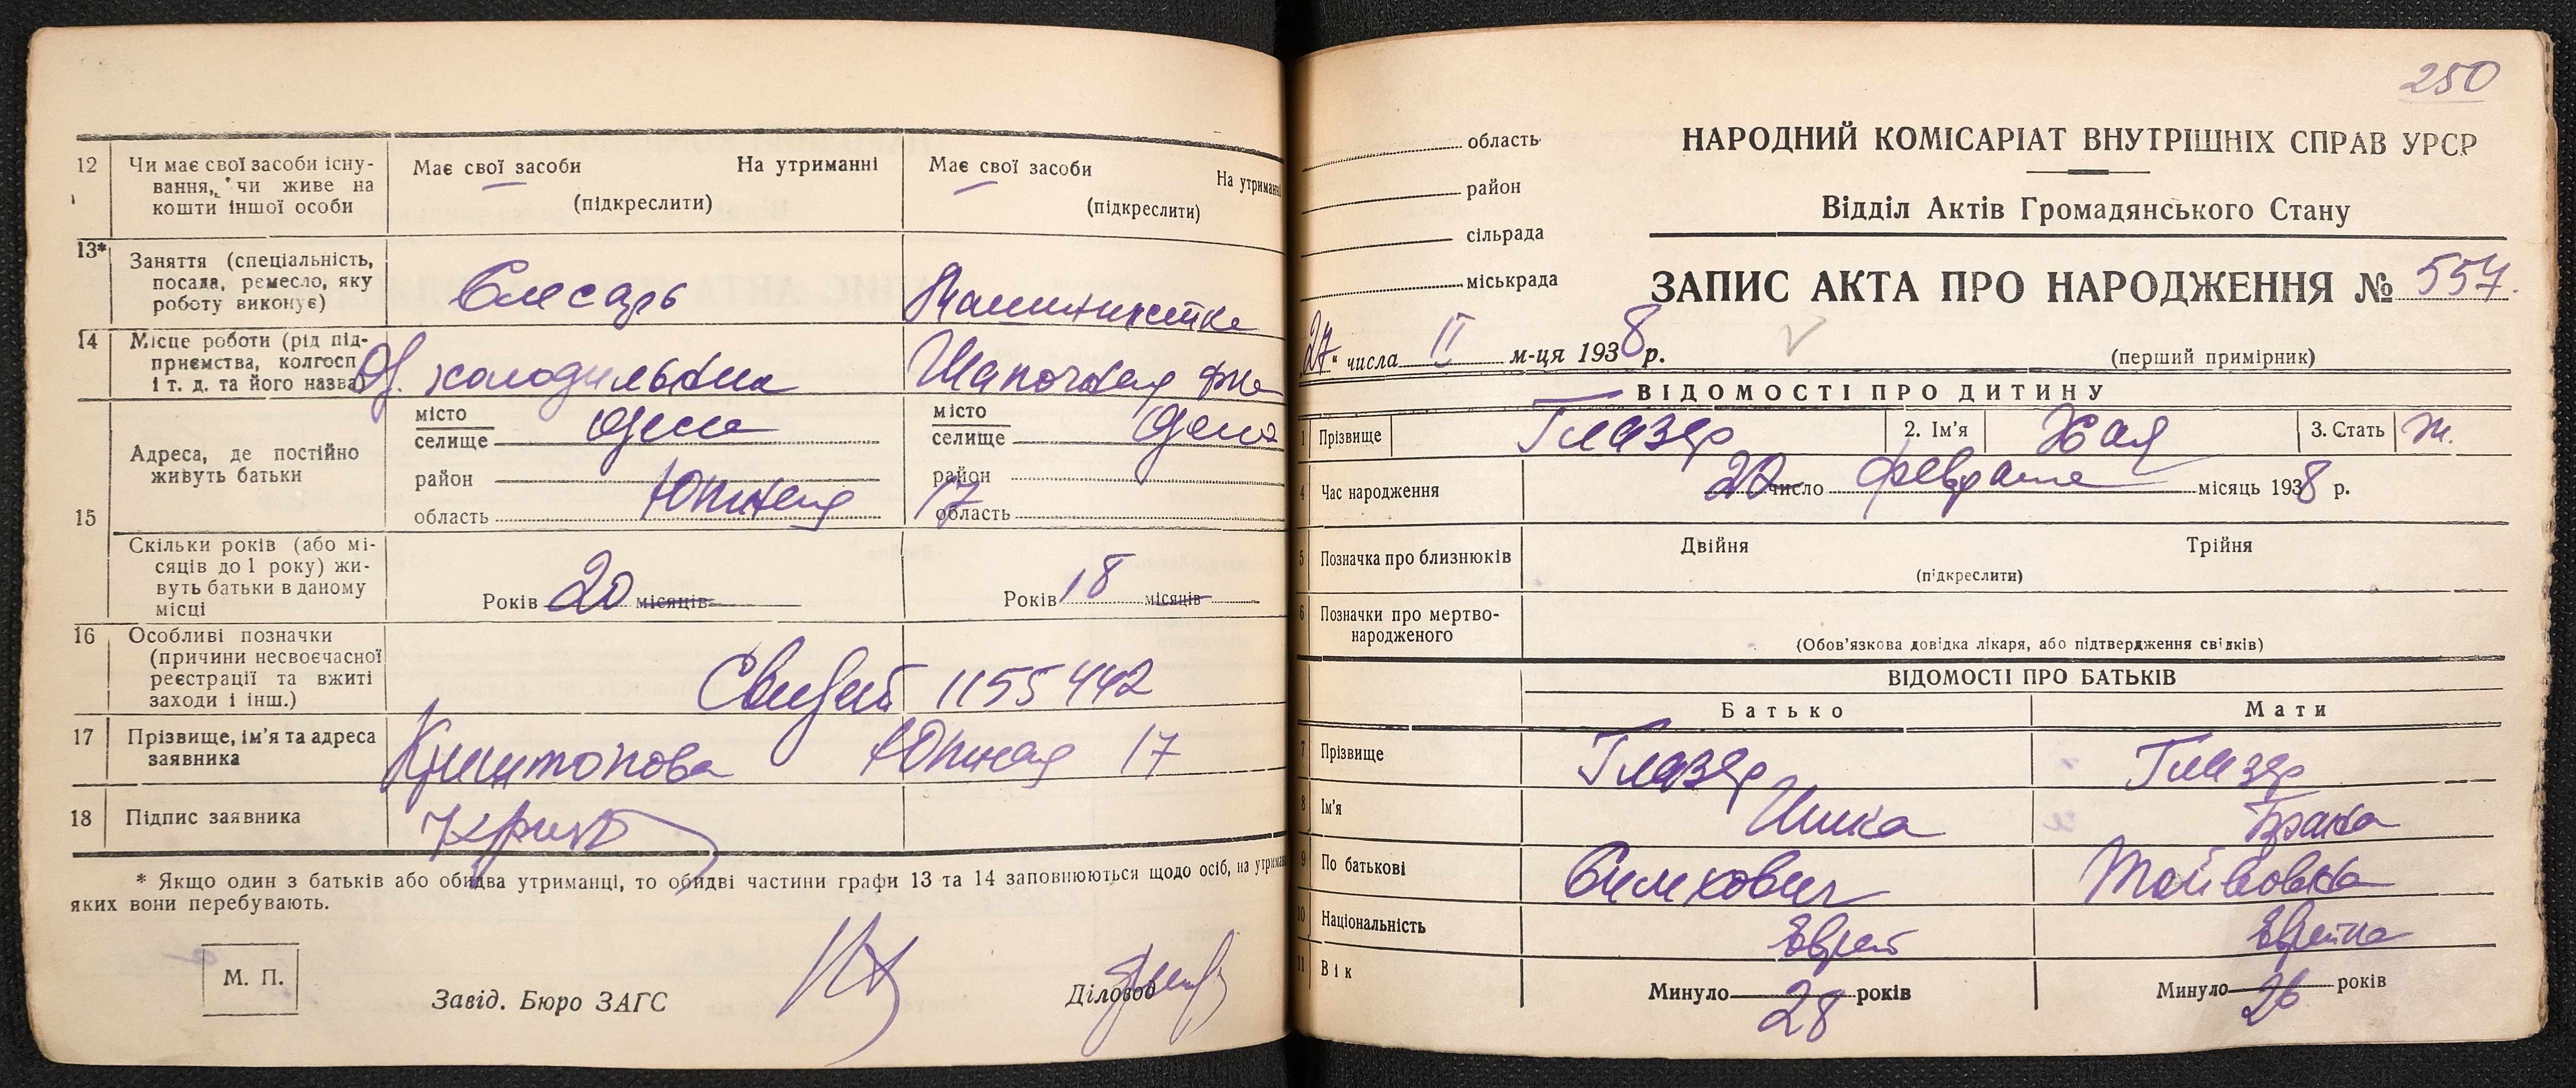 12 Чи має свої засоби існу-
вання, чи живе на
кошти іншої особи
Має свої засоби На утриманні
(підкреслити)
Має свої засоби На утриманні
(підкреслити)
13* Заняття (спеціальність,
посада, ремесло, яку
роботу виконує)
Слесарь
Машинистка
14 Місце роботи (рід під-
приємства, колгосп
і т. д. та його назва)
Од. холодильник
Шапочная
15 Адреса, де постійно
живуть батьки
місто
селище Одесса
район
область Южная
місто
селище Одесса
район
область 17
Скільки років (або мі-
сяців до 1 року) жи-
вуть батьки в даному
місці
Років 20 місяців
Років 18 місяців
16 Особливі позначки
(причини несвоєчасної
реєстрації та вжиті
заходи і інш.)
Свидет 1155442
17 Прізвище, ім'я та адреса
заявника
Криштопова Южная 17
18 Підпис заявника
* Якщо один з батьків або обидва утриманці, то обидві частини графи 13 та 14 заповнюються щодо осіб, на утриман
яких вони перебувають.
М. П.
Завід. Бюро ЗАГС
Діловод
250
область
район
сільрада
міськрада
НАРОДНИЙ КОМІСАРІАТ ВНУТРІШНІХ СПРАВ УРСР
Відділ Актів Громадянського Стану
ЗАПИС АКТА ПРО НАРОДЖЕННЯ № 557.
27 " числа II м-ця 1938 р.
(перший примірник)
ВІДОМОСТІ ПРО ДИТИНУ
1 Прізвище Глазер 2. Ім'я Хая 3. Стать ж.
4 Час народження 22 число февраля місяць 1938 р.
5 Позначка про близнюків Двійня Трійня
(підкреслити)
6 Позначки про мертво-
народженого
(Обов'язкова довідка лікаря, або підтвердження свідків)
ВІДОМОСТІ ПРО БАТЬКІВ
Батько Мати
7 Прізвище Глазер Глазер
8 Ім'я Шика Браха
9 По батькові Симхович Тойвовна
10 Національність Еврей Еврейка
11 Вік Минуло 28 років Минуло 26 років